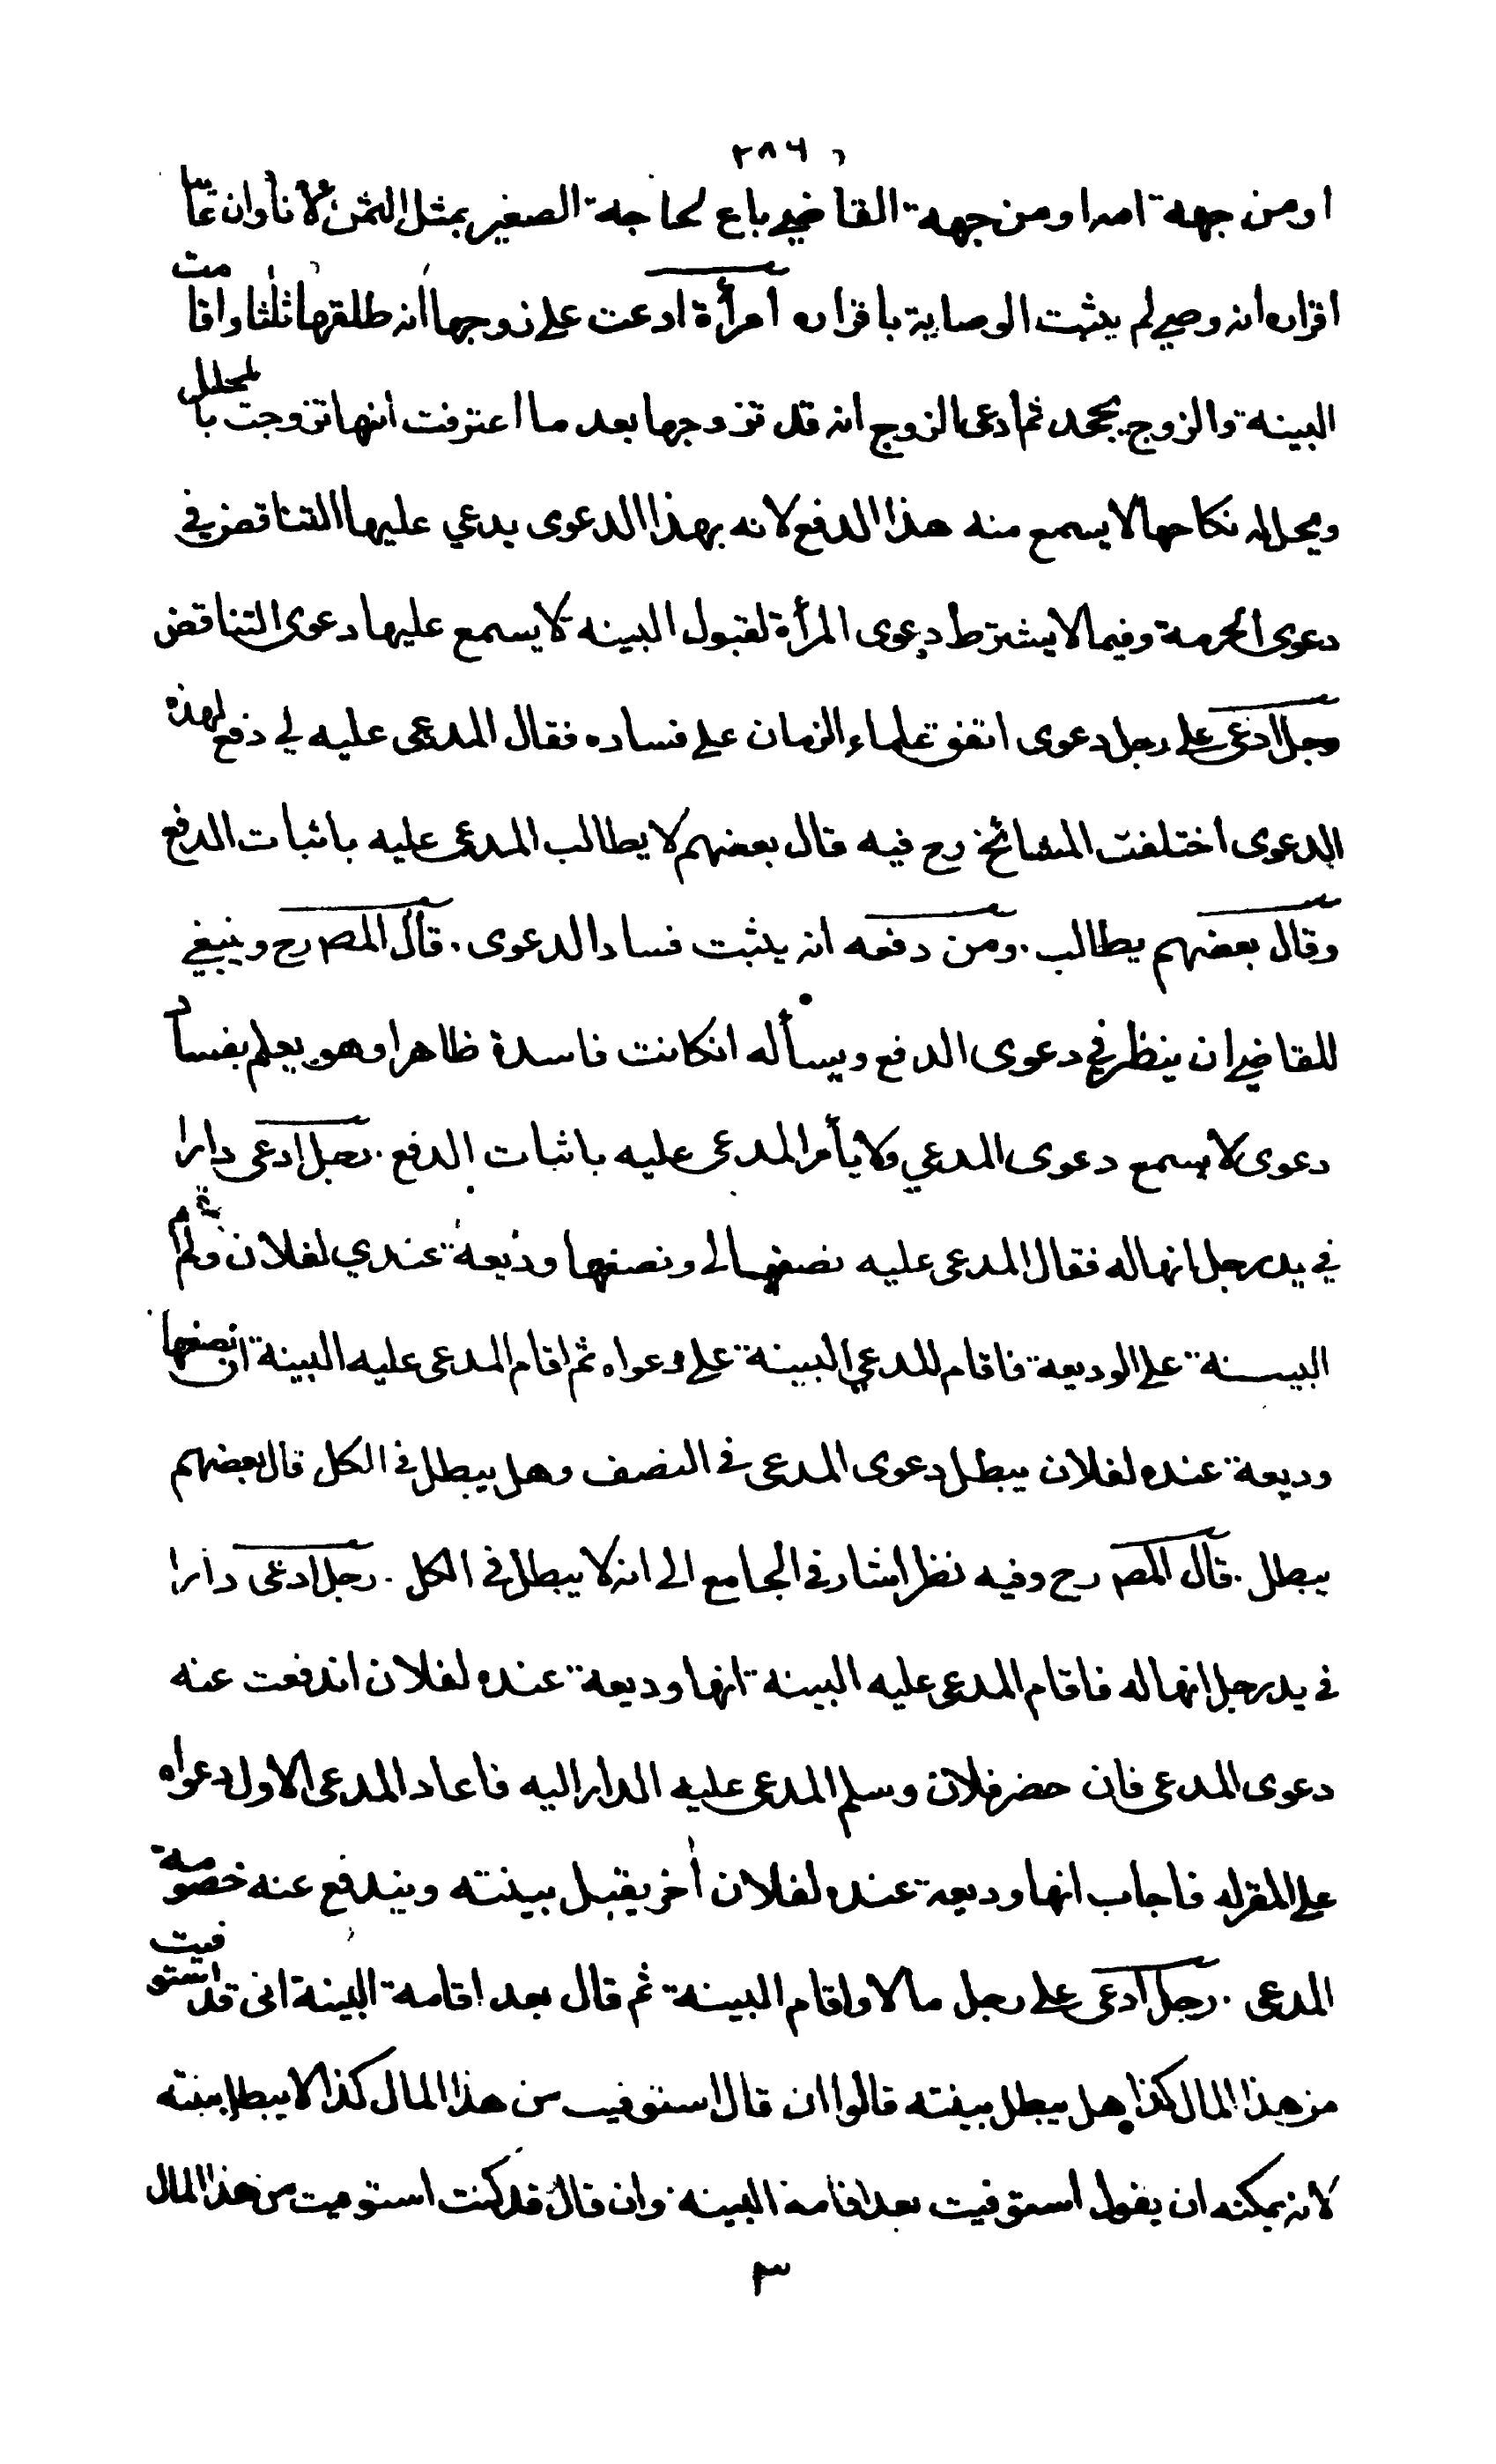 ٢٨٦
او من جهة امه او من جهة القاضي باع لحاجة الصغير بمثل الثمن لانا وان
اقراره انه وصي لم يثبت الوصاية باقراره امرأة ادعت على زوجها انه طلقها ثلثا واقامت
البينة والزوج يجحد ثم ادعى الزوج انه قد تزوجها بعد ما اعترفت انها تزوجت بالمحلل
ويحل له نكاحها لا يسمع منه هذا الدفع لانه بهذا الدعوى يدعي عليها التناقض في
دعوى الحرمة وفيما لا يشترط دعوى المرأة لقبول البينة لا يسمع عليها دعوى التناقض
رجل ادعى على رجل دعوى اتفق علماء الزمان على فساده فقال المدعى عليه لي دفع لهذه
الدعوى اختلفت المشائخ رح فيه قال بعضهم لا يطالب المدعى عليه باثبات الدفع
وقال بعضهم يطالب . ومن دفعه ان يثبت فساد الدعوى . قال المص رح وينبغي
للقاضي ان ينظر في دعوى الدفع ويسأله انكانت فاسدة ظاهرا وهو يعلم بفساد
دعوى لا يسمع دعوى المدعي ولا يأمر المدعى عليه باثبات الدفع . رجل ادعى دارا
في يد رجل انها له فقال المدعى عليه نصفها لي ونصفها وديعة عندي لفلان ولم
البينة على الوديعة فاقام المدعي البينة على دعواه ثم اقام المدعى عليه البينة ان نصفها
وديعة عنده لفلان يبطل دعوى المدعى في النصف وهل يبطل في الكل قال بعضهم
يبطل . قال المص رح وفيه نظر اشار في الجامع الى انه لا يبطل في الكل . رجل ادعى دارا
في يد رجل انها له فاقام المدعى عليه البينة انها وديعة عنده لفلان اندفعت عنه
دعوى المدعى فان حضر فلان وسلم المدعى عليه الدار اليه فاعاد المدعى الاول دعواه
على المقرله فاجاب انها وديعة عنده لفلان أخر يقبل بينته ويندفع عنه خصومة
المدعى . رجل ادعى على رجل مالا واقام البينة ثم قال بعد اقامة البينة انى قد استوفيت
من هذا المال كذا هل يبطل بينته قالوا ان قال استوفيت من هذا المال كذا لا يبطل بينته
لانه يمكنه ان يقول استوفيت بعد اقامة البينة وان قال قد كنت استوفيت من هذا المال
٣